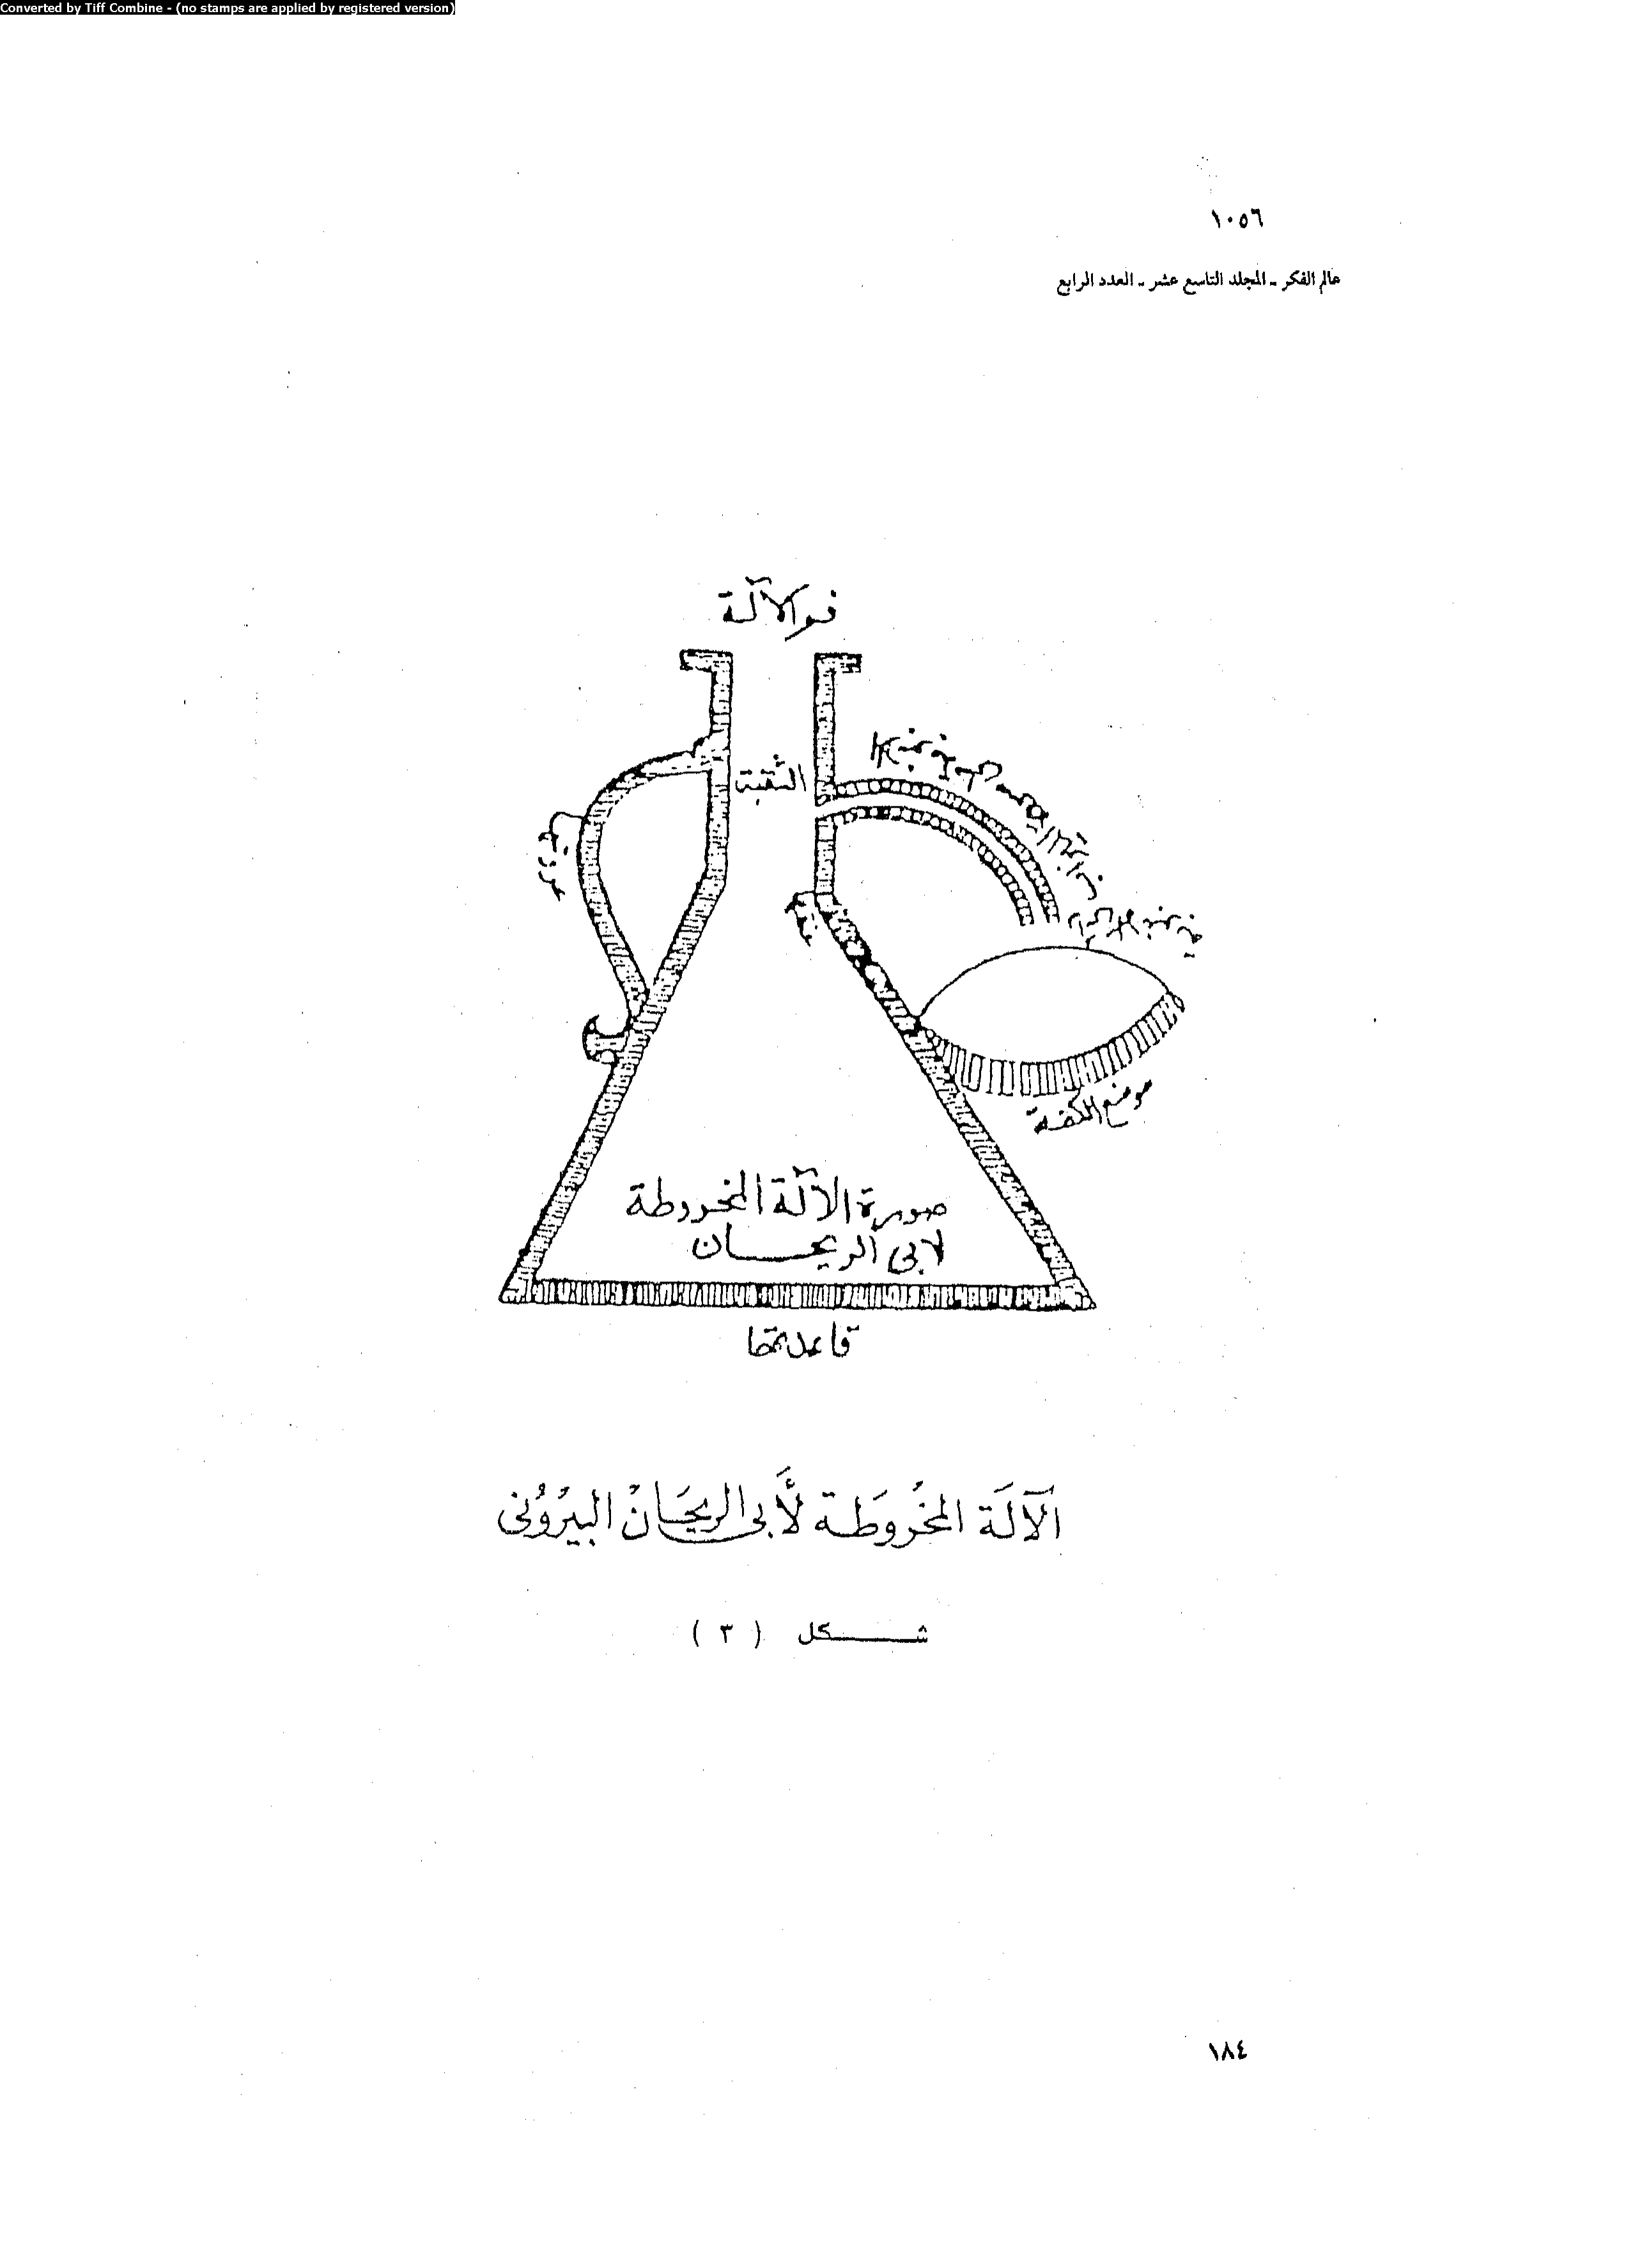 Converted by Tiff Combine - (no stamps are applied by registered version)
١٠٥٦
عالم الفكر - المجلد التاسع عشر - العدد الرابع
فم الآلة
الثقبة
موضع الكفة
صورة الآلة المخروطة
لابى الريحـــان
قاعدتها
الآلَة المخُروَطَة لأَبى الريحَانْ البيُروُنى
شـــكل ( ٣ )
١٨٤